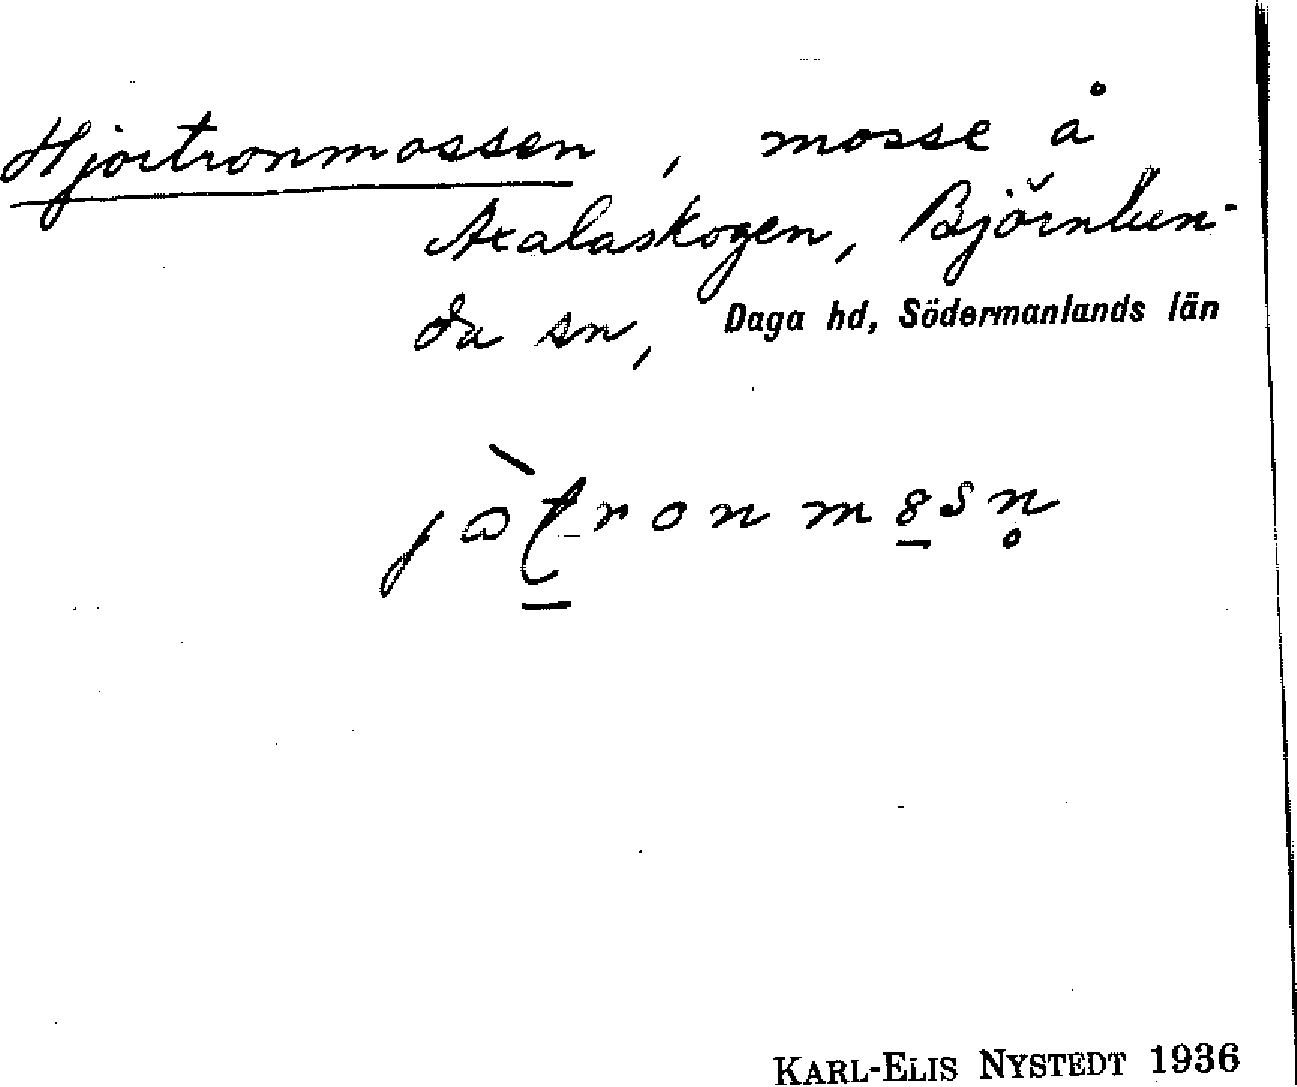 Hjortronmossen, mosse å
Axalaskogen, Björnlun-
da sn, Daga hd, Södermanlands län
KARL-ELIS NYSTEDT 1936